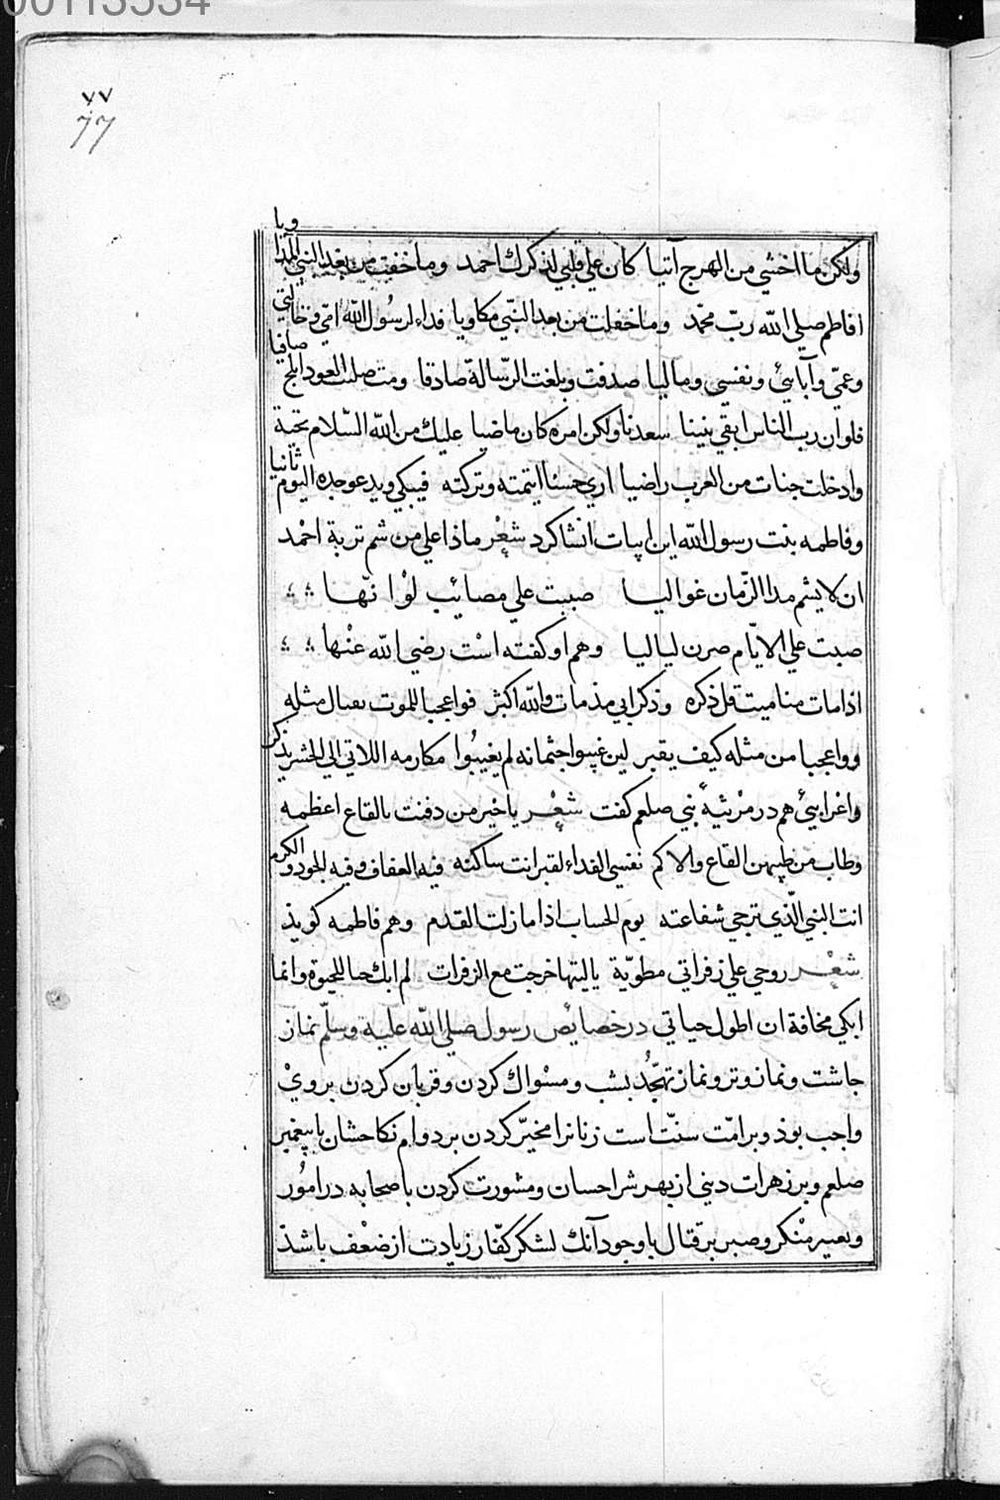 00113534
٧٧
77
ويا
ولكن ما اخشي من الهرج آتيا كان علي قلبي لذكرك احمد وما خفت من بعد النبي المذا
افاطم صلي الله ربّ محمّد وما خفلت من بعد النبّي مكاويا فداء لرسُول الله امّي وخالتي
وعمّي وآبايئ ونفسي وماليا صدقت وبلغت الرّسالة صادقا ومت صلت العود ابلج صافيا
فلوان رب الناس ابقي نبينا سعدنا ولكن امره كان ماضيا عليك من الله السّلام تحية
وادخلت جنات من العرب راضيا اري حسنا ايتمته وتركته فيبكي ويدعو جده اليوم ثانيا
وفاطمه بنت رسول الله اين ابيات انشا كرد شعْر ماذا علي من شم تربة احْمد
ان لا يشم مدا الزّمان غواليا صببت علي مصائب لوْا نّها
صبت علي الايّام صرن لياليا وهم او كفته اسْت رضي الله عنْها
اذا مات منا ميت قل ذكره وذكر ابي مذ مات والله اكثر فواعجبا للموت يغتال مثله
وواعجبا من مثله كيف يقبر لين غيبوا جثمانه لم يغيبُوا مكارمه اللاتي الي الحشر يذكر
واعرابيئ هم در مرْثيهٔ نبي صلعم كفت شعْر يا خير من دفنت بالقاع اعظمه
وطاب من طيبهن القاع والاكم نفسي الفداء لقبر انت ساكنه فيه العفاف وفيه الجود والكرم
انت النبي الّذي ترجي شفاعته يوم الحساب اذا ما زلت القدم وهم فاطمه كويذ
شعْر روحي علي زفراتي مطويّة يا ليتها خرجت مع الزفرات لم ابك حبا للحيوة وانما
ابكي مخافة ان اطول حياتي در خصائص رسول صلي الله عليه وسلّم نماز
جاشت ونماز وتر ونماز تهجّد بشب ومسْواك كردن وقربان كردن بر ويْ
واجب بوذ وبر امّت سنّت است زنانرا مخيّر كردن بر دوام نكاحشان با پيغمبر
صلعم وبر زهرات ديني از بهر شر احسان ومشورت كردن با صحابه در امُور
وتغيير منْكر وصبر بر قتال با وجود آنك لشكر كفّار زيادت از ضعْف باشذ